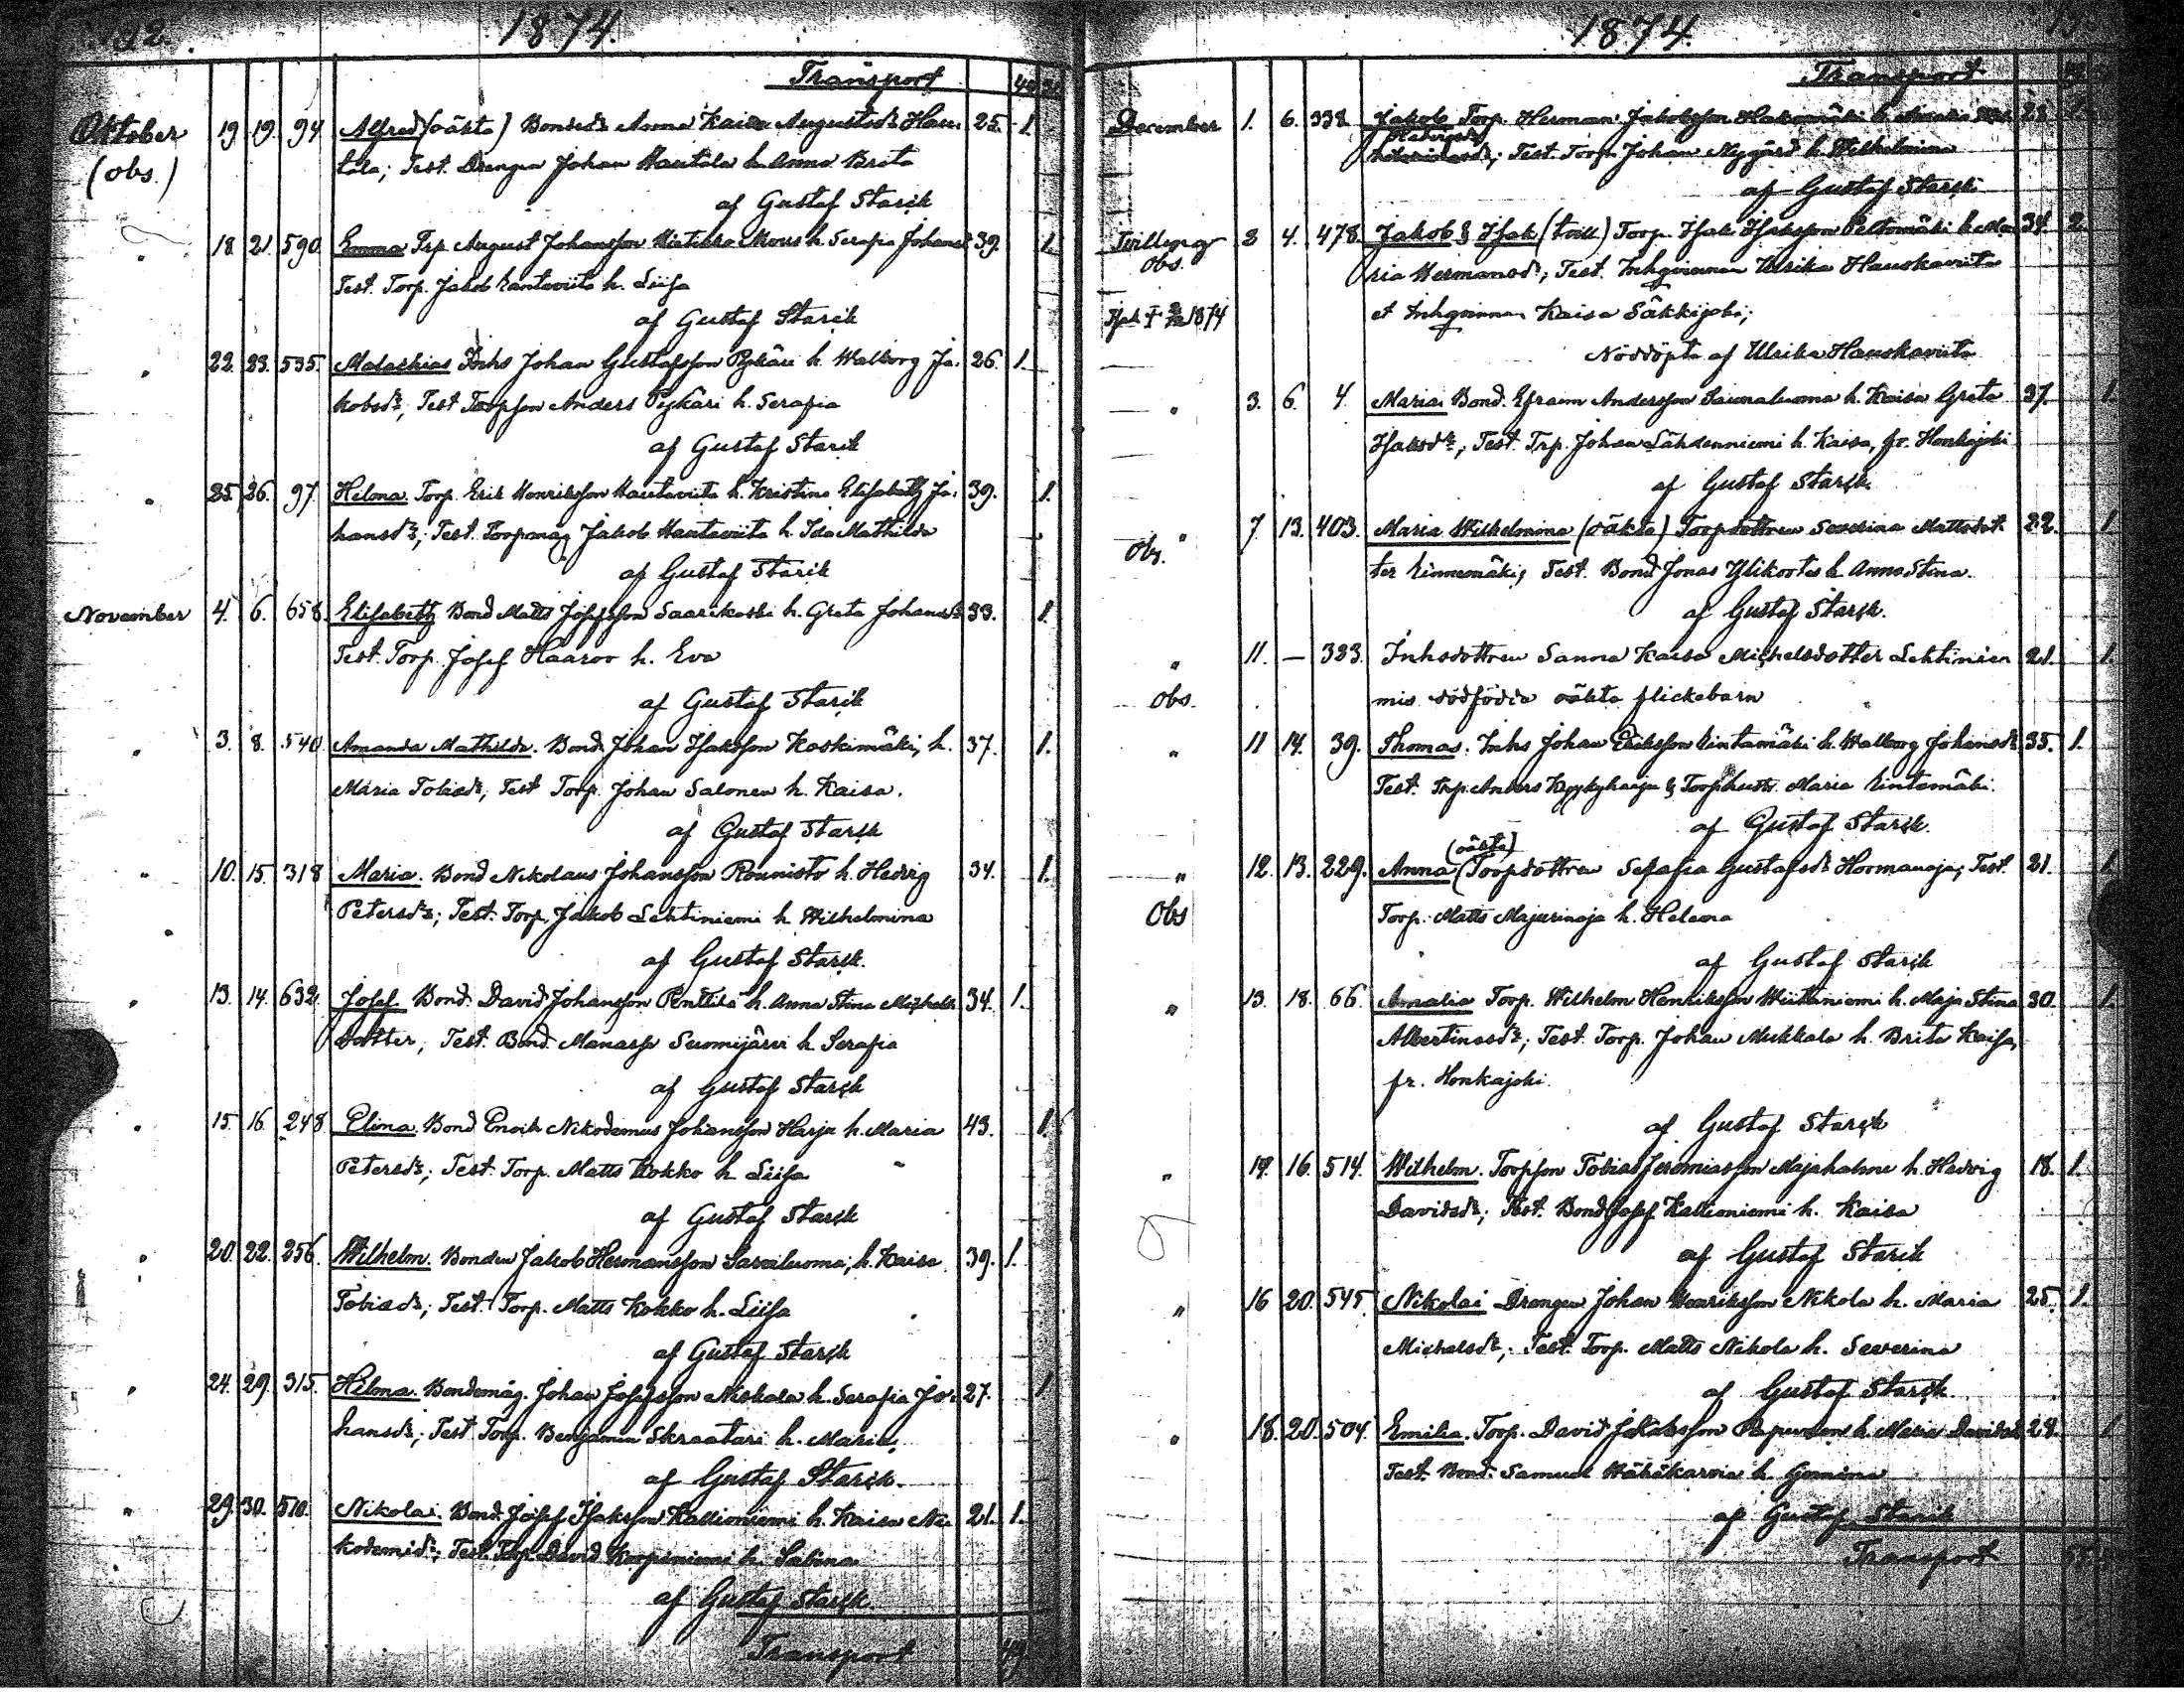 192.
1874.
Transport 44
Oktober 19 19. 94 Alfred (oäkta) Bonded:r Anna Kaisa Augustsd:r Hau- 25. 1.
(obs.) tala; Test. Drengen Johan Hautala h. Anna Brita
af Gustaf Starck
" 18. 21. 590. Emma Trp. August Johansson h. Serafia Johansd:r 39. 1.
Test. Torp. Jakob Rantaviita h. Liisa
af Gustaf Starck
" 22. 23. 535. Malachias Inhs Johan Gustafsson Pyhäri h. Walborg Ja- 26. 1.
kobsd:r, Test Torpson Anders Pyhäri h. Serafia
af Gustaf Starck
" 25. 26. 97. Hilma. Torp. Erik Henriksson Hautaviita h. Kristina Elisabeth Jo- 39. 1.
hansd:r; Test. Torpmåg Jakob Hautaviita h. Ida Mathilda
af Gustaf Starck
November 4. 6. 658. Elisabeth Bond Matts Josefsson Saarikoski h. Greta Johansd:r 33. 1.
Test. Torp. Josef Haaroo h. Eva
af Gustaf Starck
" 3. 8. 540. Amanda Mathilda. Bond. Johan Isaksson Koskimäki, h. 37. 1.
Maria Tobiasd:r, Test Torp. Johan Salonen h. Kaisa.
af Gustaf Starck
" 10. 15. 318 Maria. Bond Nikolaus Johansson Rounisto h. Hedvig 34. 1.
Petersd:r; Test. Torp. Jakob Lehtiniemi h. Wilhelmina
af Gustaf Starck.
" 13. 14. 632. Josef Bond. David Johansson Penttilä h. Anna Stina Michels 34. 1.
dotter, Test. Bond. Manasse Suomijärvi h. Serafia
af Gustaf Starck
" 15. 16. 248 Elina. Bond Enok Nikodemus Johansson Harju h. Maria 43. 1.
Petersd:r; Test. Torp. Matts Kokko h. Liisa
af Gustaf Starck
" 20. 22. 256. Wilhelm. Bonden Jakob Hermansson Sarviluoma; h. Kaisa 39. 1.
Tobiasd:r; Test. Torp. Matts Kokko h. Liisa
af Gustaf Starck
" 24. 29. 315. Hilma. Bondemåg. Johan Josefsson Niskala h. Serafia Jo- 27. 1
hansd:r; Test Torp. Benjamin Skraatari h. Maria
af Gustaf Starck.
" 29. 30. 510. Nikolai. Bond. Josef Isaksson Kallioniemi h. Kaisa Ni- 21. 1.
kodemid:r; Test. Torp. David Korpiniemi h. Sabina
af Gustaf Starck.
Transport 49
1874.
Transport
December 1. 6. 338. Jakob Torp. Herman Jakobsson Hakomäki h. 28
Test. Torp. Johan Nygård h. Wilhelmina
af Gustaf Starck
Tvillingar 2 4. 478. Jakob & Isak (tvill) Torp. Isak Isaksson Peltomäki h. Ma- 34. 2.
Obs. ria Hermansd:r; Test. Inhqvinnan Ulrika Hauskaviita
Isak † 1874 et Inhqvinnan Kaisa Säkkijoki;
Nöddöpta af Ulrika Hauskaviita
" 3. 6. 4. Maria. Bond. Efraim Andersson Saunaluoma h. Kaisa Greta 37. 1.
Isaksd:r; Test. Trp. Johan Lähdenniemi h. Kaisa, fr. Honkajoki
af Gustaf Starck.
" 7 13. 403. Maria Wilhelmina (oäkta) Torpdottren Severina Mattsdot- 22. 1.
Obs. ter Rinnemäki; Test. Bond Jonas Ylikoitos h. Anna Stina.
af Gustaf Starck.
" 11. — 383. Inhsdottren Sanna Kaisa Michelsdotter Lehtinien 21. 1.
Obs. mis dödfödda oäkta flickebarn
" 11 14. 39. Thomas. Inhs Johan Eriksson Rintamäki h. Walborg Johansd:r 35. 1.
Test. Trp. Anders Kyykyharju & Torphustr. Maria Rintamäki.
af Gustaf Starck.
(oäkta)
" 12. 13. 229. Anna (Torpdottren Serafia Gustafsd:r Hormanoja; Test. 21. 1
Obs Torp. Matts Majurinoja h. Helena
af Gustaf Starck
" 13. 18. 66. Amalia Torp. Wilhelm Henriksson Wiitaniemi h. Maja Stina 30. 1.
Albertinasd:r; Test. Torp. Johan Mukkala h. Brita Kaisa,
fr. Honkajoki.
af Gustaf Starck
" 14. 16. 514. Wilhelm. Torpson Tobias Jeremiasson Majahalme h. Hedvig 18. 1.
Davidsd:r; Test. Bond Josef Kallioniemi h. Kaisa
af Gustaf Starck
" 16 20. 545 Nikolai Drengen Johan Henriksson Nikola h. Maria 25. 1.
Michelsd:r; Test. Torp. Matts Nikola h. Severina
af Gustaf Starck.
" 18. 20. 504. Emilia. Torp. David Isaksson h. Maria Davidsd:r 28. 1
Test. Bond. Samuel Wähäkarvia h. Gomina
af Gustaf Starck
Transport